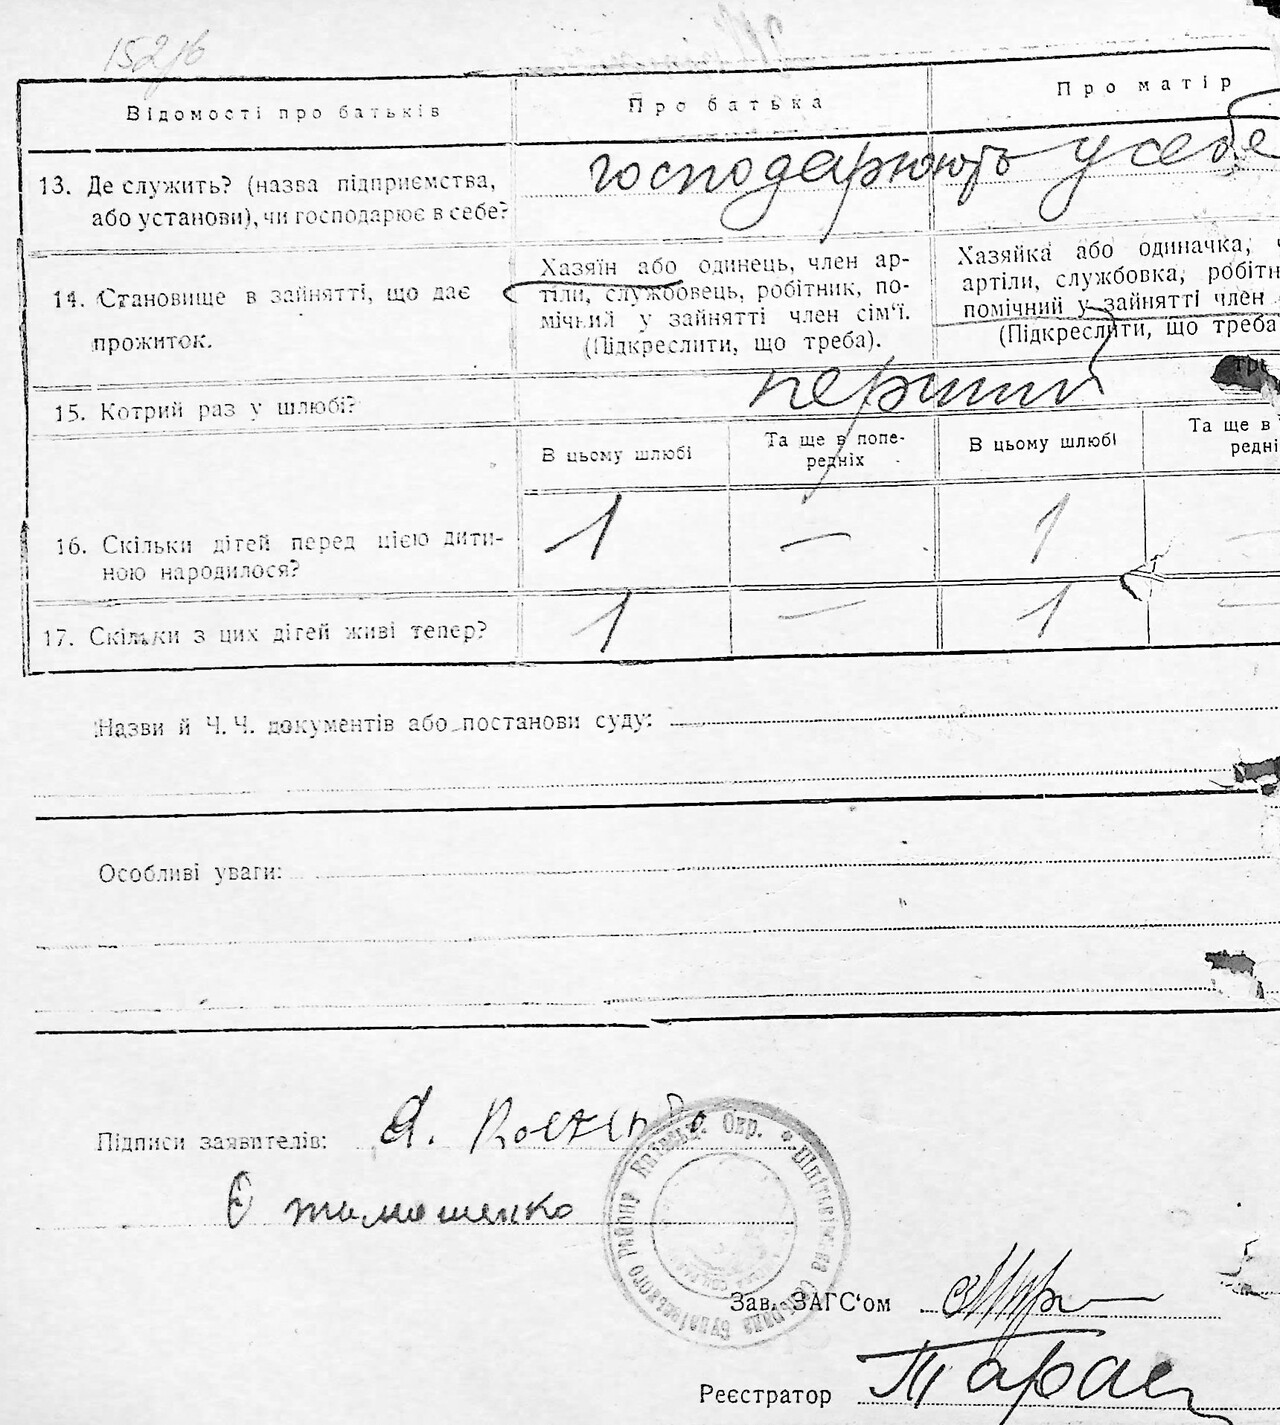 152зв
Відомості про батьків
Про батька
Про матір
13. Де служить? (назва підприємства,
або установи), чи господарює в себе?
господарюють у себе
14. Становище в зайнятті, що дає
прожиток.
Хазяїн або одинець, член ар-
тіли, службовець, робітник, по-
мічний у зайнятті член сім'ї.
(Підкреслити, що треба).
Хазяйка або одиначка,
артіли, службовка, робітн
помічний у зайнятті член
(Підкреслити, що треба
15. Котрий раз у шлюбі?
перший
В цьому шлюбі
Та ще в попе-
редніх
В цьому шлюбі
Та ще в
редні
16. Скільки дітей перед цією дити-
ною народилося?
1 — 1 —
17. Скільки з цих дітей живі тепер?
1 — 1 —
Назви й Ч. Ч. документів або постанови суду:
Особливі уваги:
Підписи заявителів:
Є тимошенко
Київськ. Окр.
сільрада
району
Зав. ЗАГС'ом
Реєстратор Тарас